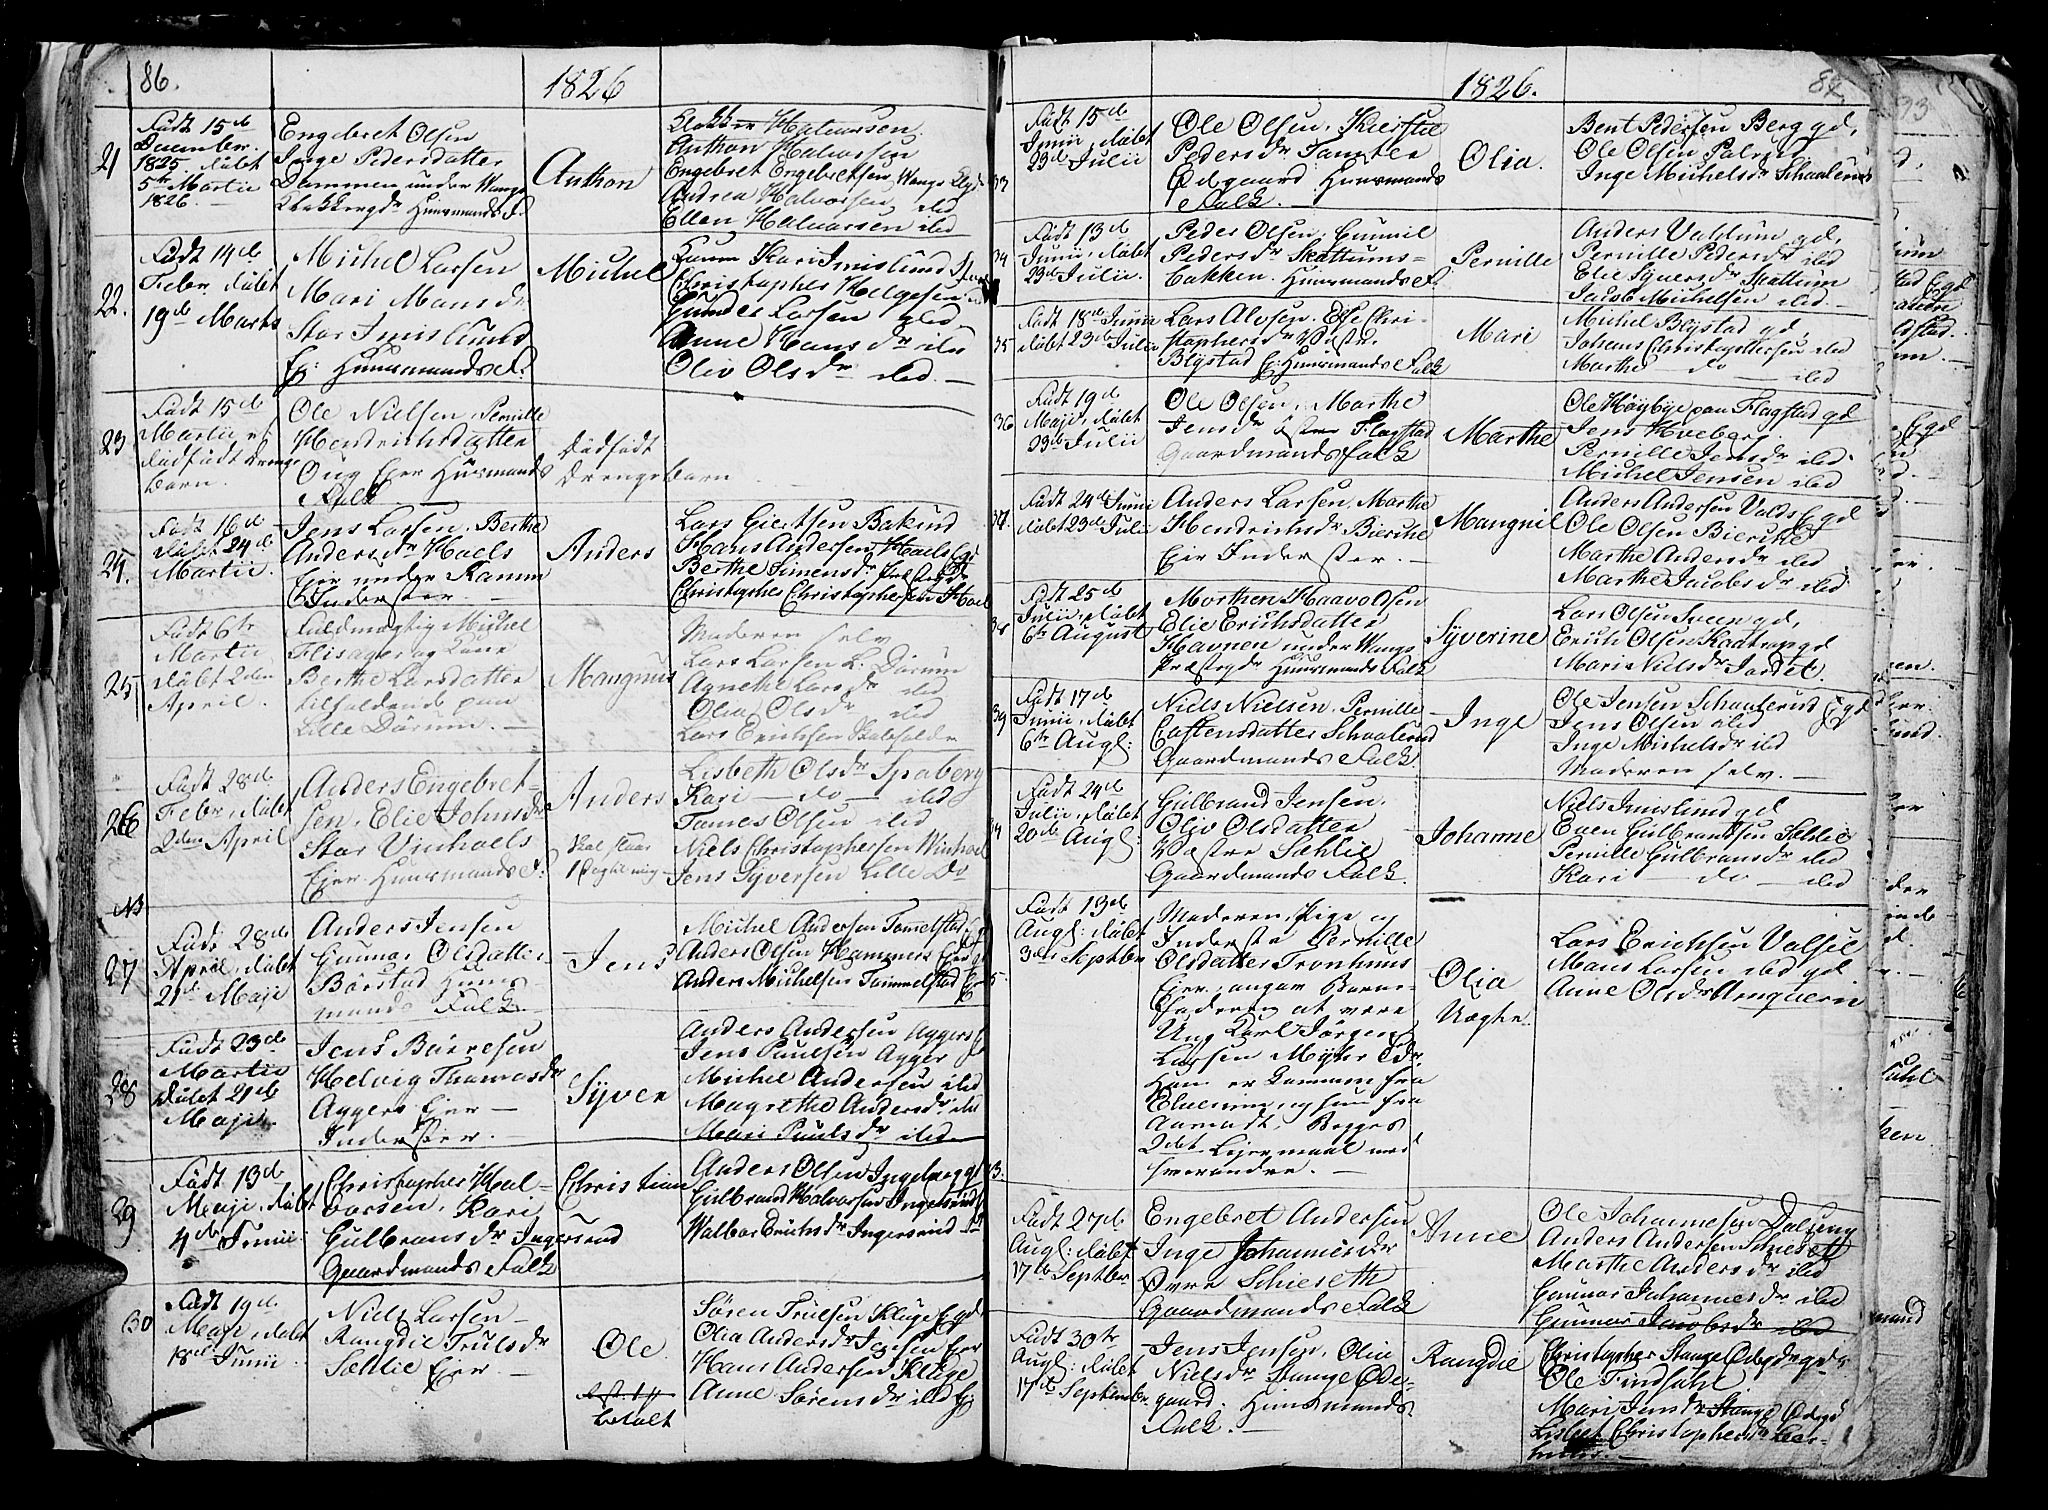 86.
1826
21
Født 15de
December
1825, døbt
5te Martii
1826.
Engebret Olsen
Inge Pedersdatter
Dammen under Wangs
Klokkergd. Huusmands F.
Anthon
Klokker Halvorsen
Anthon Halvorsen
Engebret Engebretsen Wangs
Andrea Halvorsen ibid
Ellen Halvorsen ibid
22.
Født 14de
Febr. døbt
19de Marts
Michel Larsen
Mari Hansdr
Stor Imislunds
Ejer Huusmands F.
Michel
Kari Imislund
Christopher Helgesen
Gunder Larsen ibid
Anne Hansdr ibid
Oliv Olsdr ibid.
23
Født 15de
Martii et
dødfødt Drenge
barn.
Ole Nielsen, Pernille
Hendrichsdatter
Ejer Huusmands
Falk
Dødfødt
Drengebarn
24.
Født 16de
døbt 24de
Martii.
Jens Larsen, Berthe
Andersdr Hoels
Ejer under Ramm
Inderster.
Anders
Lars Giertsen Bakind
Hans Andersen Hoels
Berthe Simensdr
Christopher Christophersen Hoel
25
Født 6te
Martii
døbt 2den
April.
Fuldmægtig Michel
Flisager og Kone
Berthe Larsdatter
tilholdende paa
Lille Dørum.
Mangnus
Moderen selv
Lars Larsen L. Dørum
Agnethe Larsdr ibid
Olia Olsdr ibid
Lars Erichsen
26
Født 28de
Febr. døbt
2den April
Anders Engebret-
sen, Elie Johnsdr
Stor Vinhoels
Ejer Huusmands F.
Anders
Lisbeth Olsdr Spaberg
Kari — do — ibid
Tomes Olsen ibid
Niels Christophersen Winhoel
Jens Syversen Lille Do
NB
27
Født 28de
April, døbt
21de Maji
Anders Jensen
Gunnor Olsdatter
Børstad Huus-
mands Falk.
Jens
Michel Andersen Tommelstad
Anders Olsen Hammers Ejer
Anders Michelsen Tommelstad
28
Født 23de
Martii
døbt 21de
Maji.
Jens Børresen
Helvig Thomasdr
Aggers Ejer —
Inderster. —
Syver
Anders Andersen Aggers
Jens Paulsen Agger
Michel Andersen ibid
Magrethe Andersdr ibid
Mari Paulsdr ibid
29
Født 13de
Maji, døbt
4de Junii
Christopher Hal-
vorsen, Kari
Gulbransdr Ingersrud
Gaardmands Falk
Christian
Anders Olsen Ingeberg gd
Gulbrand Halvorsen Ingelsrud
Walbor Erichsdr Ingersrud
30
Født 19de
Maji, døbt
18de Junii
Niels Larsen
Rangdie Trulsdr
Sæhlie Ejer. —
Ole
betalt
Søren Trulsen Kluge E. gd
Olia Andersdr Ejer
Hans Andersen Kluge
Anne Sørensdr ibid
1826.
87
33
Født 15de
Junii, døbt
23de Julii
Ole Olsen, Kierstie
Pedersdr Tomter
Ødegaard Huusmands
Falk. —
Olia.
Bent Pedersen Berg gd,
Ole Olsen
Inge Michelsdr Schaalerud
34
Født 13de
Junii, døbt
23de Julii
Peder Olsen, Gunnil
Pedersdr Skattums-
bakken. Huusmands F.
Pernille
Anders Valdum gd,
Pernille Pedersdr ibid
Elie Syversdr Skattum
Jacob Michelsen ibid —
35
Født 18de Junii
døbt 23de Julii
Lars Alvsen, Else Chri-
stophersdr Vestre
Blystad Ej. Huusmands Falk
Mari
Michel Blystad gd,
Johans Christophersen ibid
Marthe — do — ibid
36
Født 19de
Maji, døbt
23de Julii
Ole Olsen, Marthe
Jensdr Østre Flagstad
Gaardmands Falk
Marthe
Ole Høybye paa Flagstad gd
Jens Hveberg
Pernille Jensdr ibid
Michel Jensen ibid
37.
Født 24de Junii
døbt 23de Julii
Anders Larsen, Marthe
Hendrichsdr Bierche
Ejer Inderster. —
Mangnil
Anders Andersen Volds E. gd
Ole Olsen Bierche
Marthe Andersdr ibid
Marthe Jacobsdr ibid.
38
Født 25de
Julii, døbt
6te August
Morthen Haavoldsen
Elie Erichsdatter
Havnen under Wangs
Præstegd. Huusmands Falk
Syverine
Lars Olsen Sveen gd,
Erich Olsen gd
Mari Nielsdr Jordet.
39
Født 17de
Junii, døbt
6te Augl:
Niels Nielsen, Pernille
Castensdatter Schaalerud
Gaardmands Falk.
Inge
Ole Jensen Schaalerud E. gd
Jens Olsen ibid
Inge Michelsdr ibid
Moderen selv. —
Født 24de
Julii, døbt
20de Augl:
Gulbrand Jensen,
Oliv Olsdatter
Vestre Sæhlie
Gaardmands Falk.
Johanne
Niels Imislund gd
Even Gulbrandsen Sæhlie
Pernille Gulbransdr ibid
Kari — do — ibid
Født 13de
Augl: døbt
3die Septbr
Moderen Pige og
Inderste Pernille
Olsdatter Tronhuus
Ejer, angav Barne-
faderen at være
Ung Karl Jørgen
Larsen Myhr
Han er kommen fra
Elverum, og hun fra
Aamodt. Begges
2det Lejermaal med
hverandre. —
Olia
Uægte.
Lars Erichsen Valset
Hans Larsen ibid gd
Anne Olsdr
Født 27de
Augl: døbt
17de Septbr
Engebret Andersen
Inge Johannesdr
Øvre Schieseth
Gaardmands Falk
Anne
Ole Johannesen Dalseng
Anders Andersen Schieseth
Marthe Andersdr ibid
Gunnor Johannesdr ibid
Gunnor Jacobsdr ibid
Født 30te
Augl: døbt
17de September
Jens Jensen, Olia
Nielsdr Stange Øde-
gaard. Huusmands
Falk. —
Rangdie
Christopher Stange Ødegd. gd.
Ole Findsahl
Mari Jensdr Stange Ødegd
Lisbet Christophersdr
93